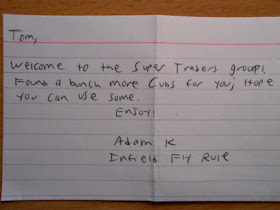 Tom,
Welcome to the Super Traders group!
Found a bunch more Cubs for you, Hope
you can use some.
Enjoy!
Adam K
Infield Fly Rule